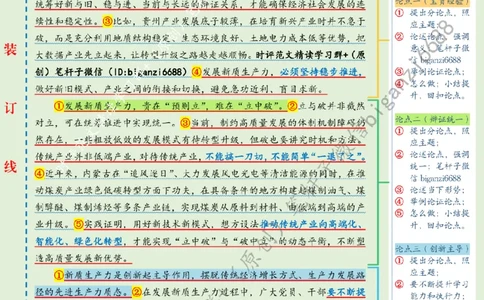 统筹好新与旧、稳与进、当前与长远的辩证关系，才能确保经济社会发展的连
续性和稳定性。③比如，贵州产业发展底子较薄，在培育新兴产业时并不急于
破，而是充分利用地质结构稳定、生态环境良好、土地电力成本低等优势，把
大数据产业先立起来，让转型升级之路越走越顺畅。时评范文精读学习群+(原
创)笔杆子微信(ID:biganzi6688)④发展新质生产力，必须坚持稳步推进，
做好新旧模式、产业之间的衔接和切换，避免急功近利、盲目求新。
①发展新质生产力，贵在“预则立”，难在“立中破”。②立与破并非截然
对立，可在统筹推进中实现统一。③当前，制约高质量发展的体制机制障碍仍
然存在，一些粗放低效的发展模式有待转型升级，但破也要讲究时机和方法。
传统产业并非低端产业，对待传统产业，不能搞一刀切，不能简单“一退了之”。
④近年来，内蒙古在“追风逐日”、大力发展风电光电等清洁能源的同时，在推
动煤炭产业绿色低碳转型方面下功夫，在具备条件的地方构建起煤制油气、煤
制醇醚、煤制烯烃等多条产业链，实现煤炭从原料到材料、由低端到高端的产
业升级。⑤实践证明，用好新技术新模式，想方设法推动传统产业向高端化、
智能化、绿色化转型，才能实现“立中破”与“破中立”的动态平衡，不断塑
造高质量发展新优势。
①新质生产力是创新起主导作用，摆脱传统经济增长方式、生产力发展路
径的先进生产力质态。②在发展新质生产力过程中，广大党员、干部要不断提
装
订
线
① 提出分论点，照
应主题；
② 论述论点，强调
③ 举例论证论点；
④ 怎么做；小结提
升、回扣论点。
论点二（辩证统一）
① 提出分论点，照
应主题；
② 论述论点，强调
统一：笔杆子微
信 biganzi6688
③ 论述当下弊
④ 举例论证论点；
⑤ 怎么做；小结提
升、回扣论点。
论点三（创新主导）
① 提出分论点，照
应主题；
② 要不断提升学习